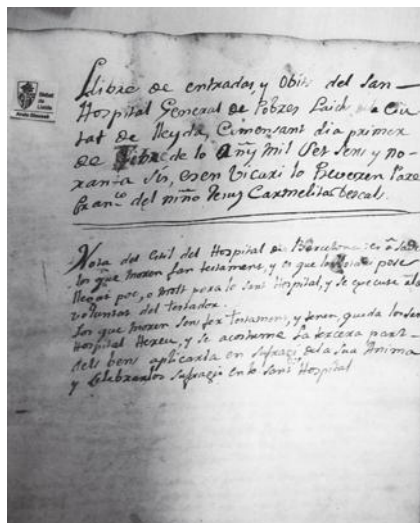 Llibre de entradas, y Obits del San-
Hospital General de Pobres Laichs de la Ciu
tat de Lleyda, Comensant dia primer
de de lo Añy mil Set Sens y no-
ranta Sis, esen Vicari lo Reveren Pare
Fran.co del niño Jesus Carmelita Descals.
Nota del Estil del Hospital de Barcelona
los que moren fan testament, y es que lo Notari pose
llegat poc, o molt pera lo Sant Hospital, y se execute la
voluntat del testador.
Los que moren sens fer testament, y tenen, queda lo Sant
Hospital Hereu, y se acostuma la tercera part-
dels bens aplicarla en sufragi de la Sua Anima
y Celebrantlos sufragis en lo Sant Hospital